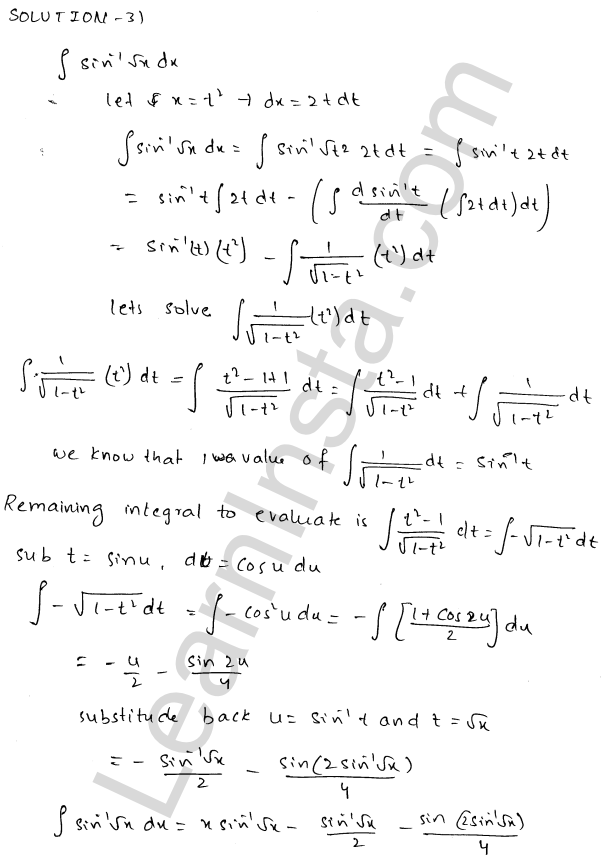 SOLUTION-3)
∫ sin⁻¹√x dx
let x = t² → dx = 2t dt
∫ sin⁻¹√x dx = ∫ sin⁻¹√t2 2t dt = ∫ sin⁻¹t 2t dt
= sin⁻¹t ∫ 2t dt - (∫ d sin⁻¹t/dt (∫2t dt) dt)
= sin⁻¹(t) (t²) - ∫ 1/√1-t² (t²) dt
lets solve ∫ 1/√1-t² (t²) dt
∫ 1/√1-t² (t²) dt = ∫ t²-1+1/√1-t² dt = ∫ t²-1/√1-t² dt + ∫ 1/√1-t² dt
we know that value of ∫ 1/√1-t² dt = sin⁻¹t
Remaining integral to evaluate is ∫ t²-1/√1-t² dt = ∫-√1-t² dt
sub t = sinu, dt = cosu du
∫ -√1-t² dt = ∫ -cos²u du = -∫ [1+cos2u/2] du
= - u/2 - sin 2u/4
substitude back u = sin⁻¹t and t = √x
= - sin⁻¹√x/2 - sin(2sin⁻¹√x)/4
∫ sin⁻¹√x dx = x sin⁻¹√x - sin⁻¹√x/2 - sin(2sin⁻¹√x)/4
LearnInsta.com